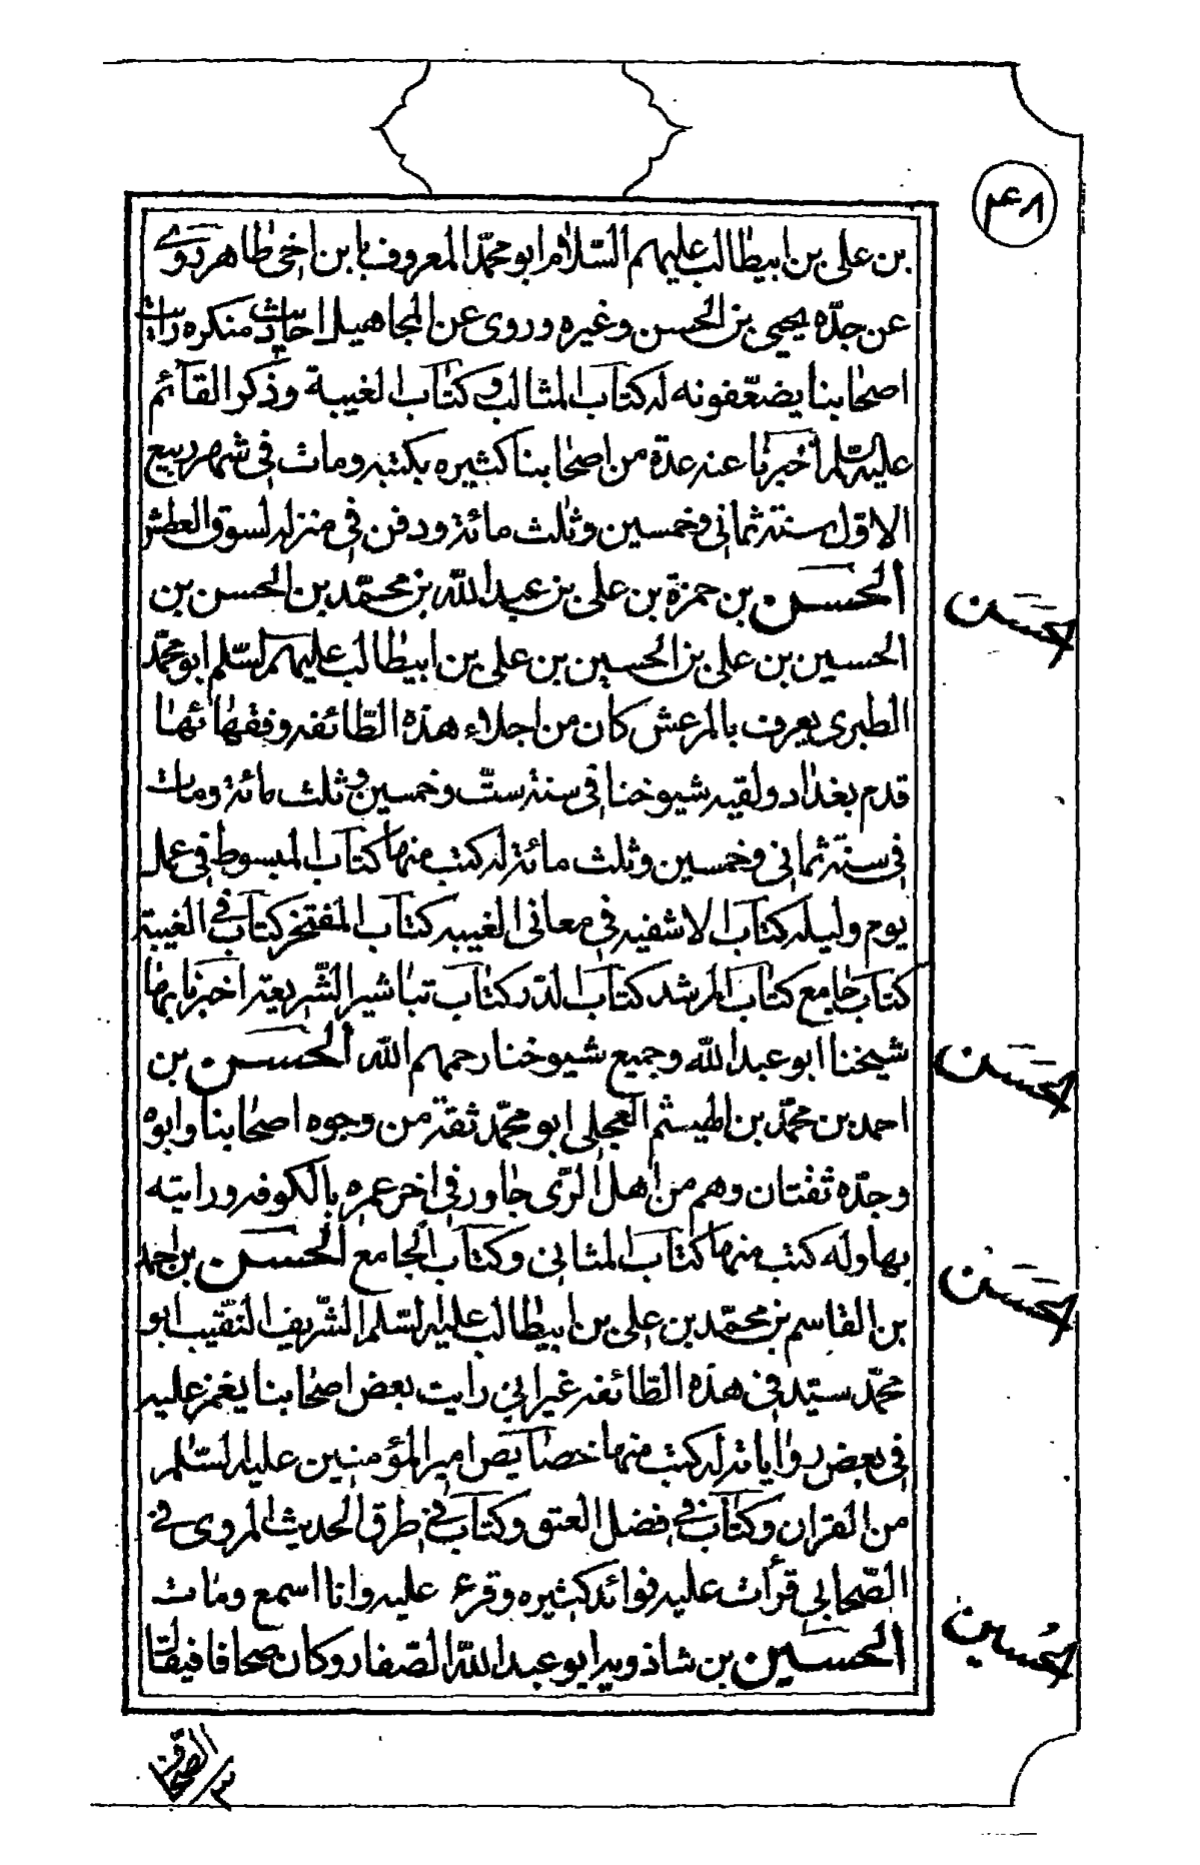 ۴۸
بن على بن ابيطالب عليهم السّلام ابو محمّد المعروف بابن اخى طاهر روى
عن جدّه يحيى بن الحسن وغيره وروى عن المجاهيل احاديث منكره رايت
اصحابنا يضعّفونه له كتاب المثالب وكتاب الغيبة وذكر القآئم
عليه السّلم أخبرنا عنه عدة من اصحابنا كثيره بكتبه ومات فى شهر ربيع
الاوّل سنة ثمانى وخمسين وثلث مائة ودفن فى منزله لسوق العطش
الحسن بن حمزة بن على بن عبد اللّه بن محمّد بن الحسن بن
الحسين بن على بن الحسين بن على بن ابيطالب عليهم السّلم ابو محمّد
الطبرى يعرف بالمرعش كان من اجلاء هذه الطّائفه وفقهائها
قدم بغداد ولقيه شيوخنا فى سنة ستّ وخمسين وثلث مائة ومات
فى سنة ثمانى وخمسين وثلث مائة له كتب منها كتاب المبسوط فى عمل
يوم وليله كتاب الاشفيه فى معانى الغيبه كتاب المفتخر كتاب فى الغيبة
كتاب جامع كتاب المرشد كتاب الدّر كتاب تباشير الشّريعة اخبرنا بها
شيخنا ابو عبد اللّه وجميع شيوخنا رحمهم اللّه الحسن بن
احمد بن محمّد بن الهيثم العجلى ابو محمّد ثقة من وجوه اصحابنا وابوه
وجدّه ثقتان وهم من اهل الرّى جاور فى اخر عمره بالكوفه ورايته
بها وله كتب منها كتاب المثانى وكتاب الجامع الحسن بن احمد
بن القاسم بن محمّد بن على بن ابيطالب عليه السّلم الشّريف النّقيب ابو
محمّد سيّد فى هذه الطّائفه غير انى رايت بعض اصحابنا يغمز عليه
فى بعض رواياته له كتب منها خصآيص امير المؤمنين عليه السّلم
من القران وكتاب فى فضل العتق وكتاب فى طرق الحديث المروى فى
الصّحابى قرأت عليه فوائد كثيره وقرء عليه وانا اسمع ومات
الحسين بن شاذويه ابو عبد اللّه الصّفار وكان صحافا فيقال
حسن
حسن
حسن
حسين
الصحاف
٣